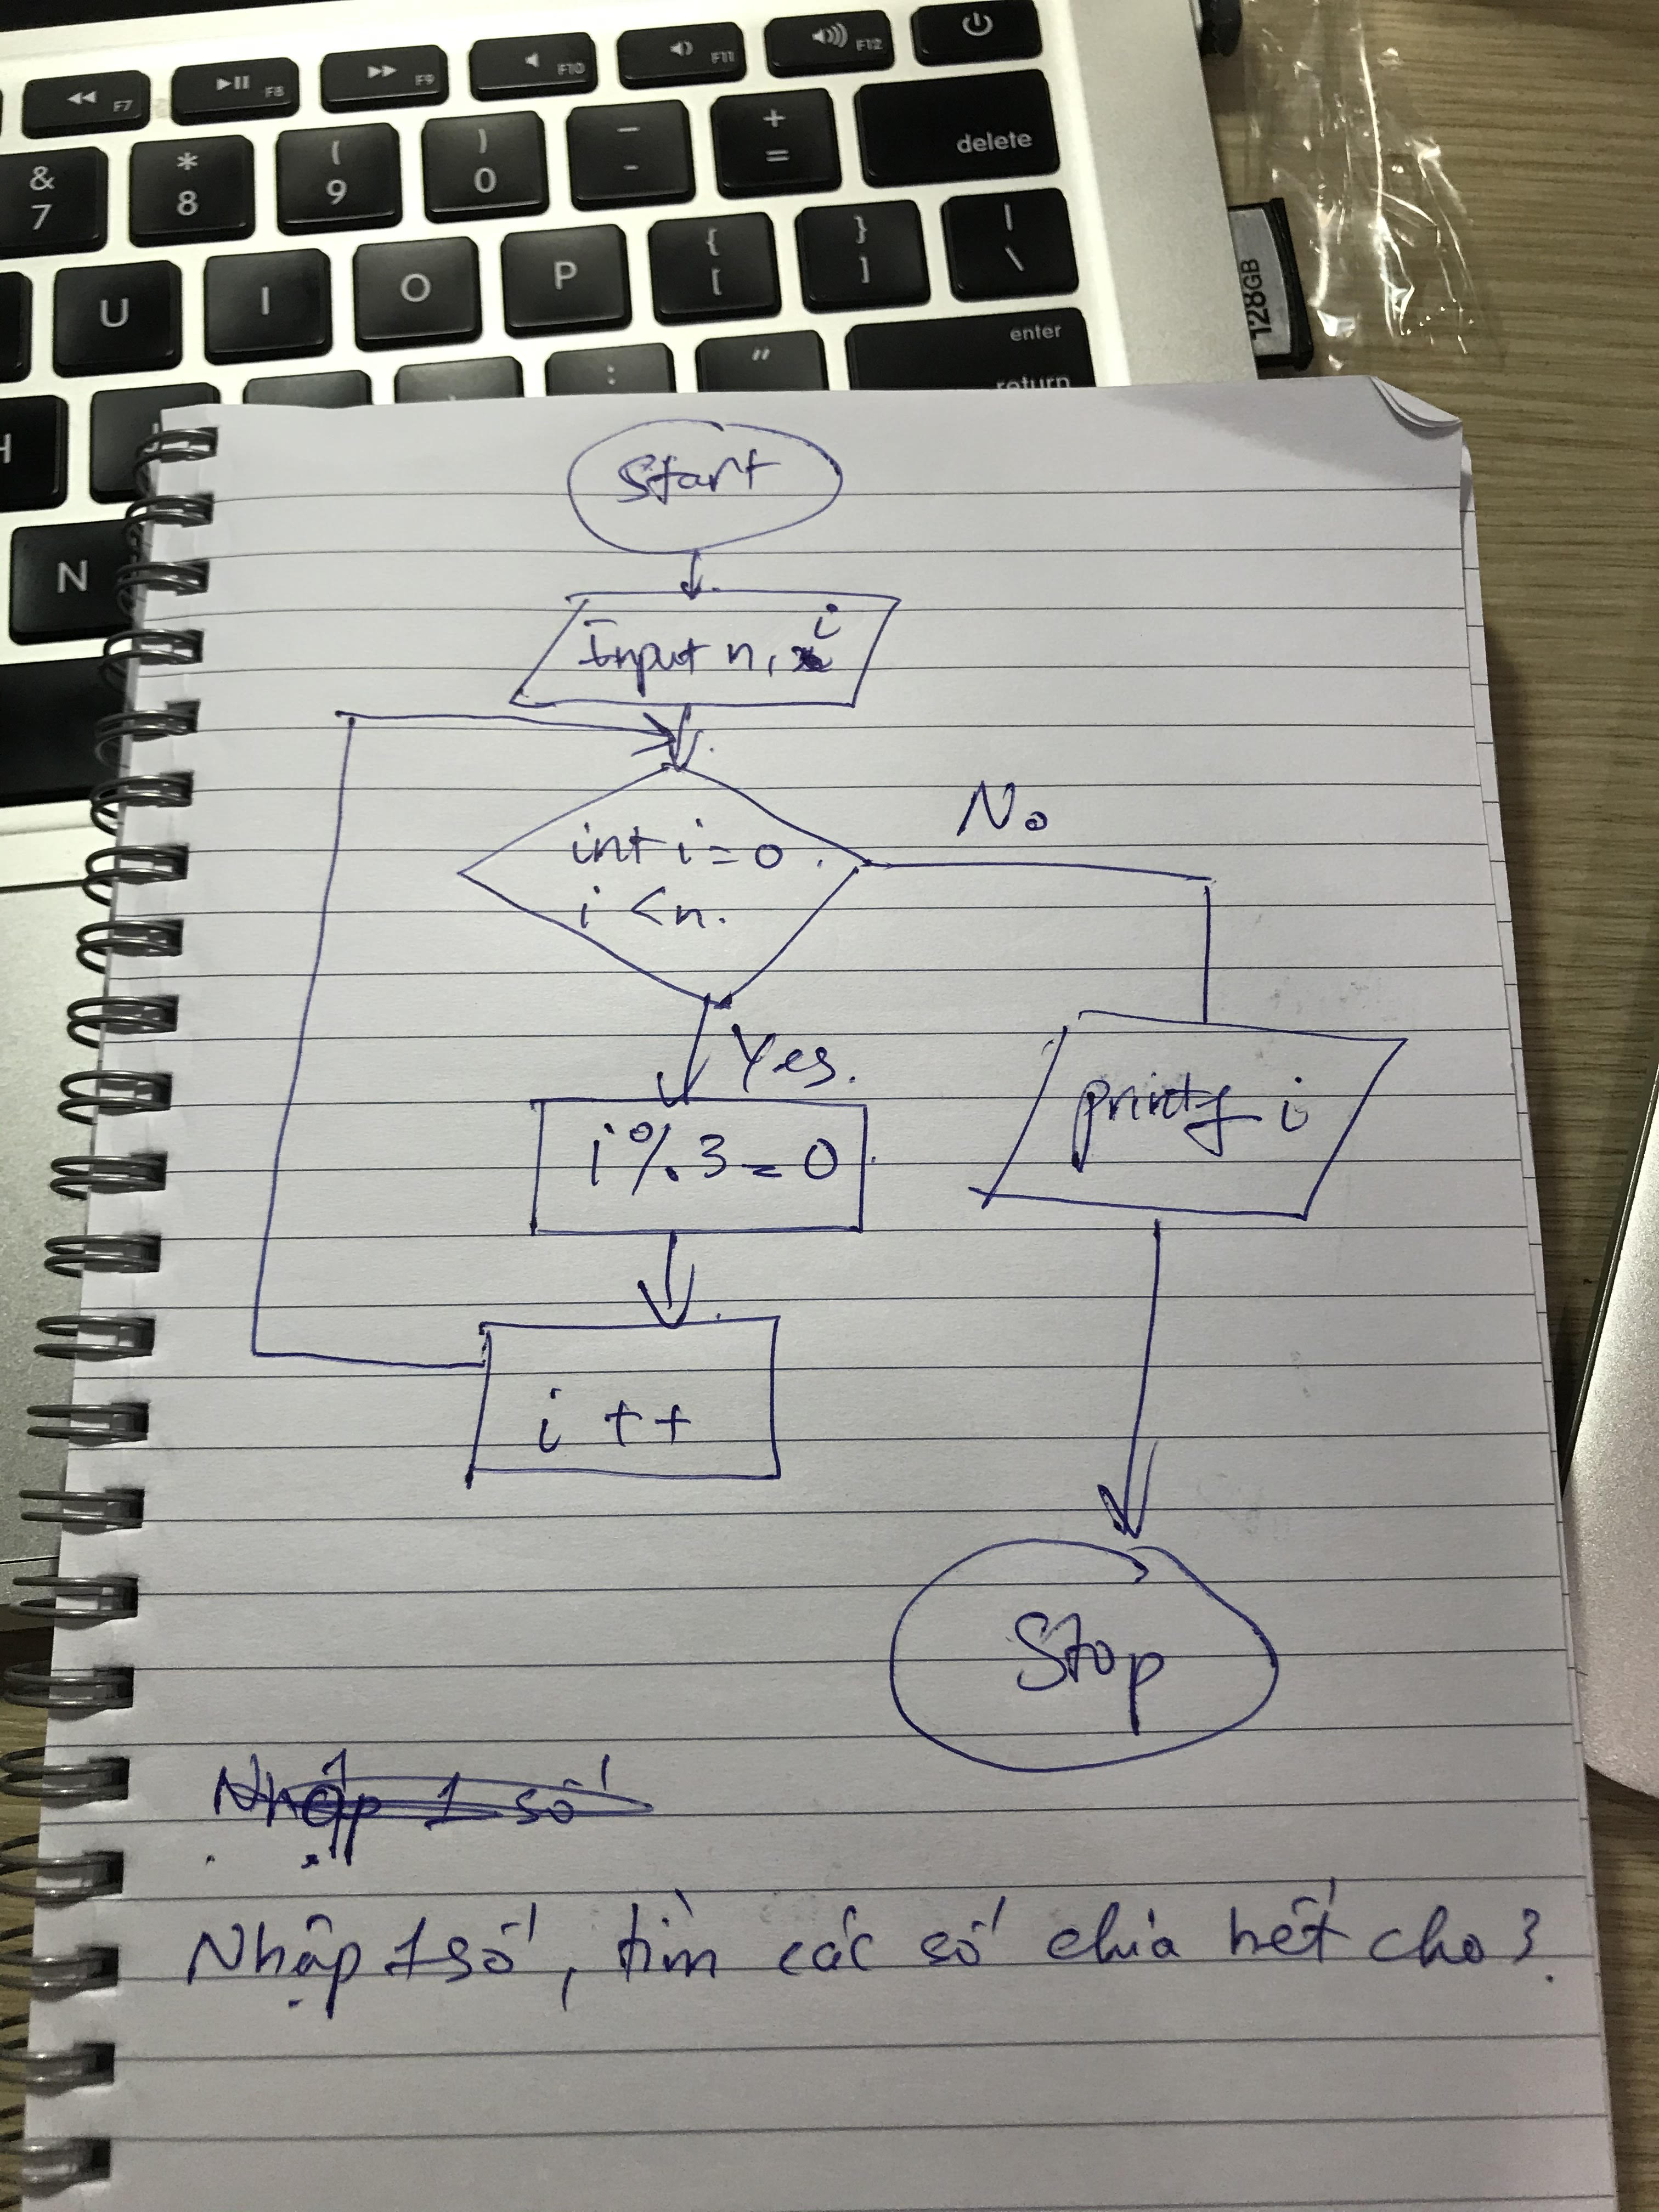 F7 F8 F9 F10 F11 F12
& 7 * 8 ( 9 ) 0 — - + = delete
U I O P { [ } ] | \
128GB
: " enter
return
H J
N
Start
Input n, i
int i = 0
i < n.
No
Yes.
i % 3 = 0
printf i
i ++
Stop
Nhập 1 số
Nhập 1 số, tìm các số chia hết cho 3.